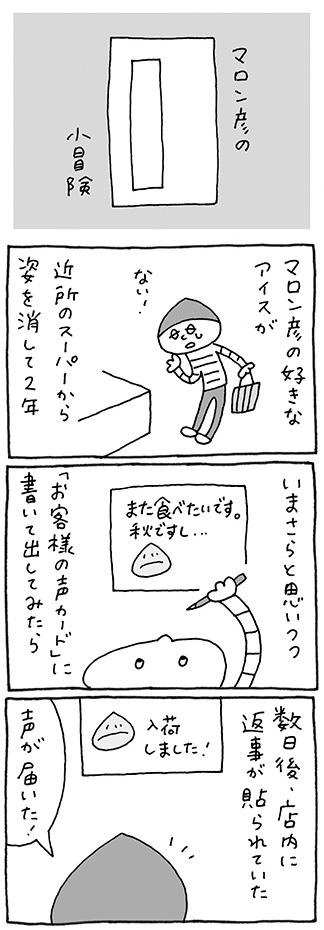 マロン彦の
小冒険
マロン彦の好きな
アイスが
ない!
近所のスーパーから
姿を消して2年
いまさらと思いつつ
また食べたいです。
秋ですし…
「お客様の声カード」に
書いて出してみたら
数日後、店内に
返事が貼られていた
入荷
しました!
声が届いた!